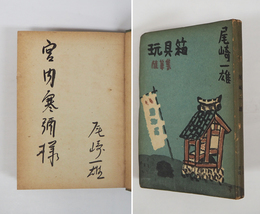 宮内寒彌様
尾崎一雄
玩具箱
随筆集
尾崎一雄